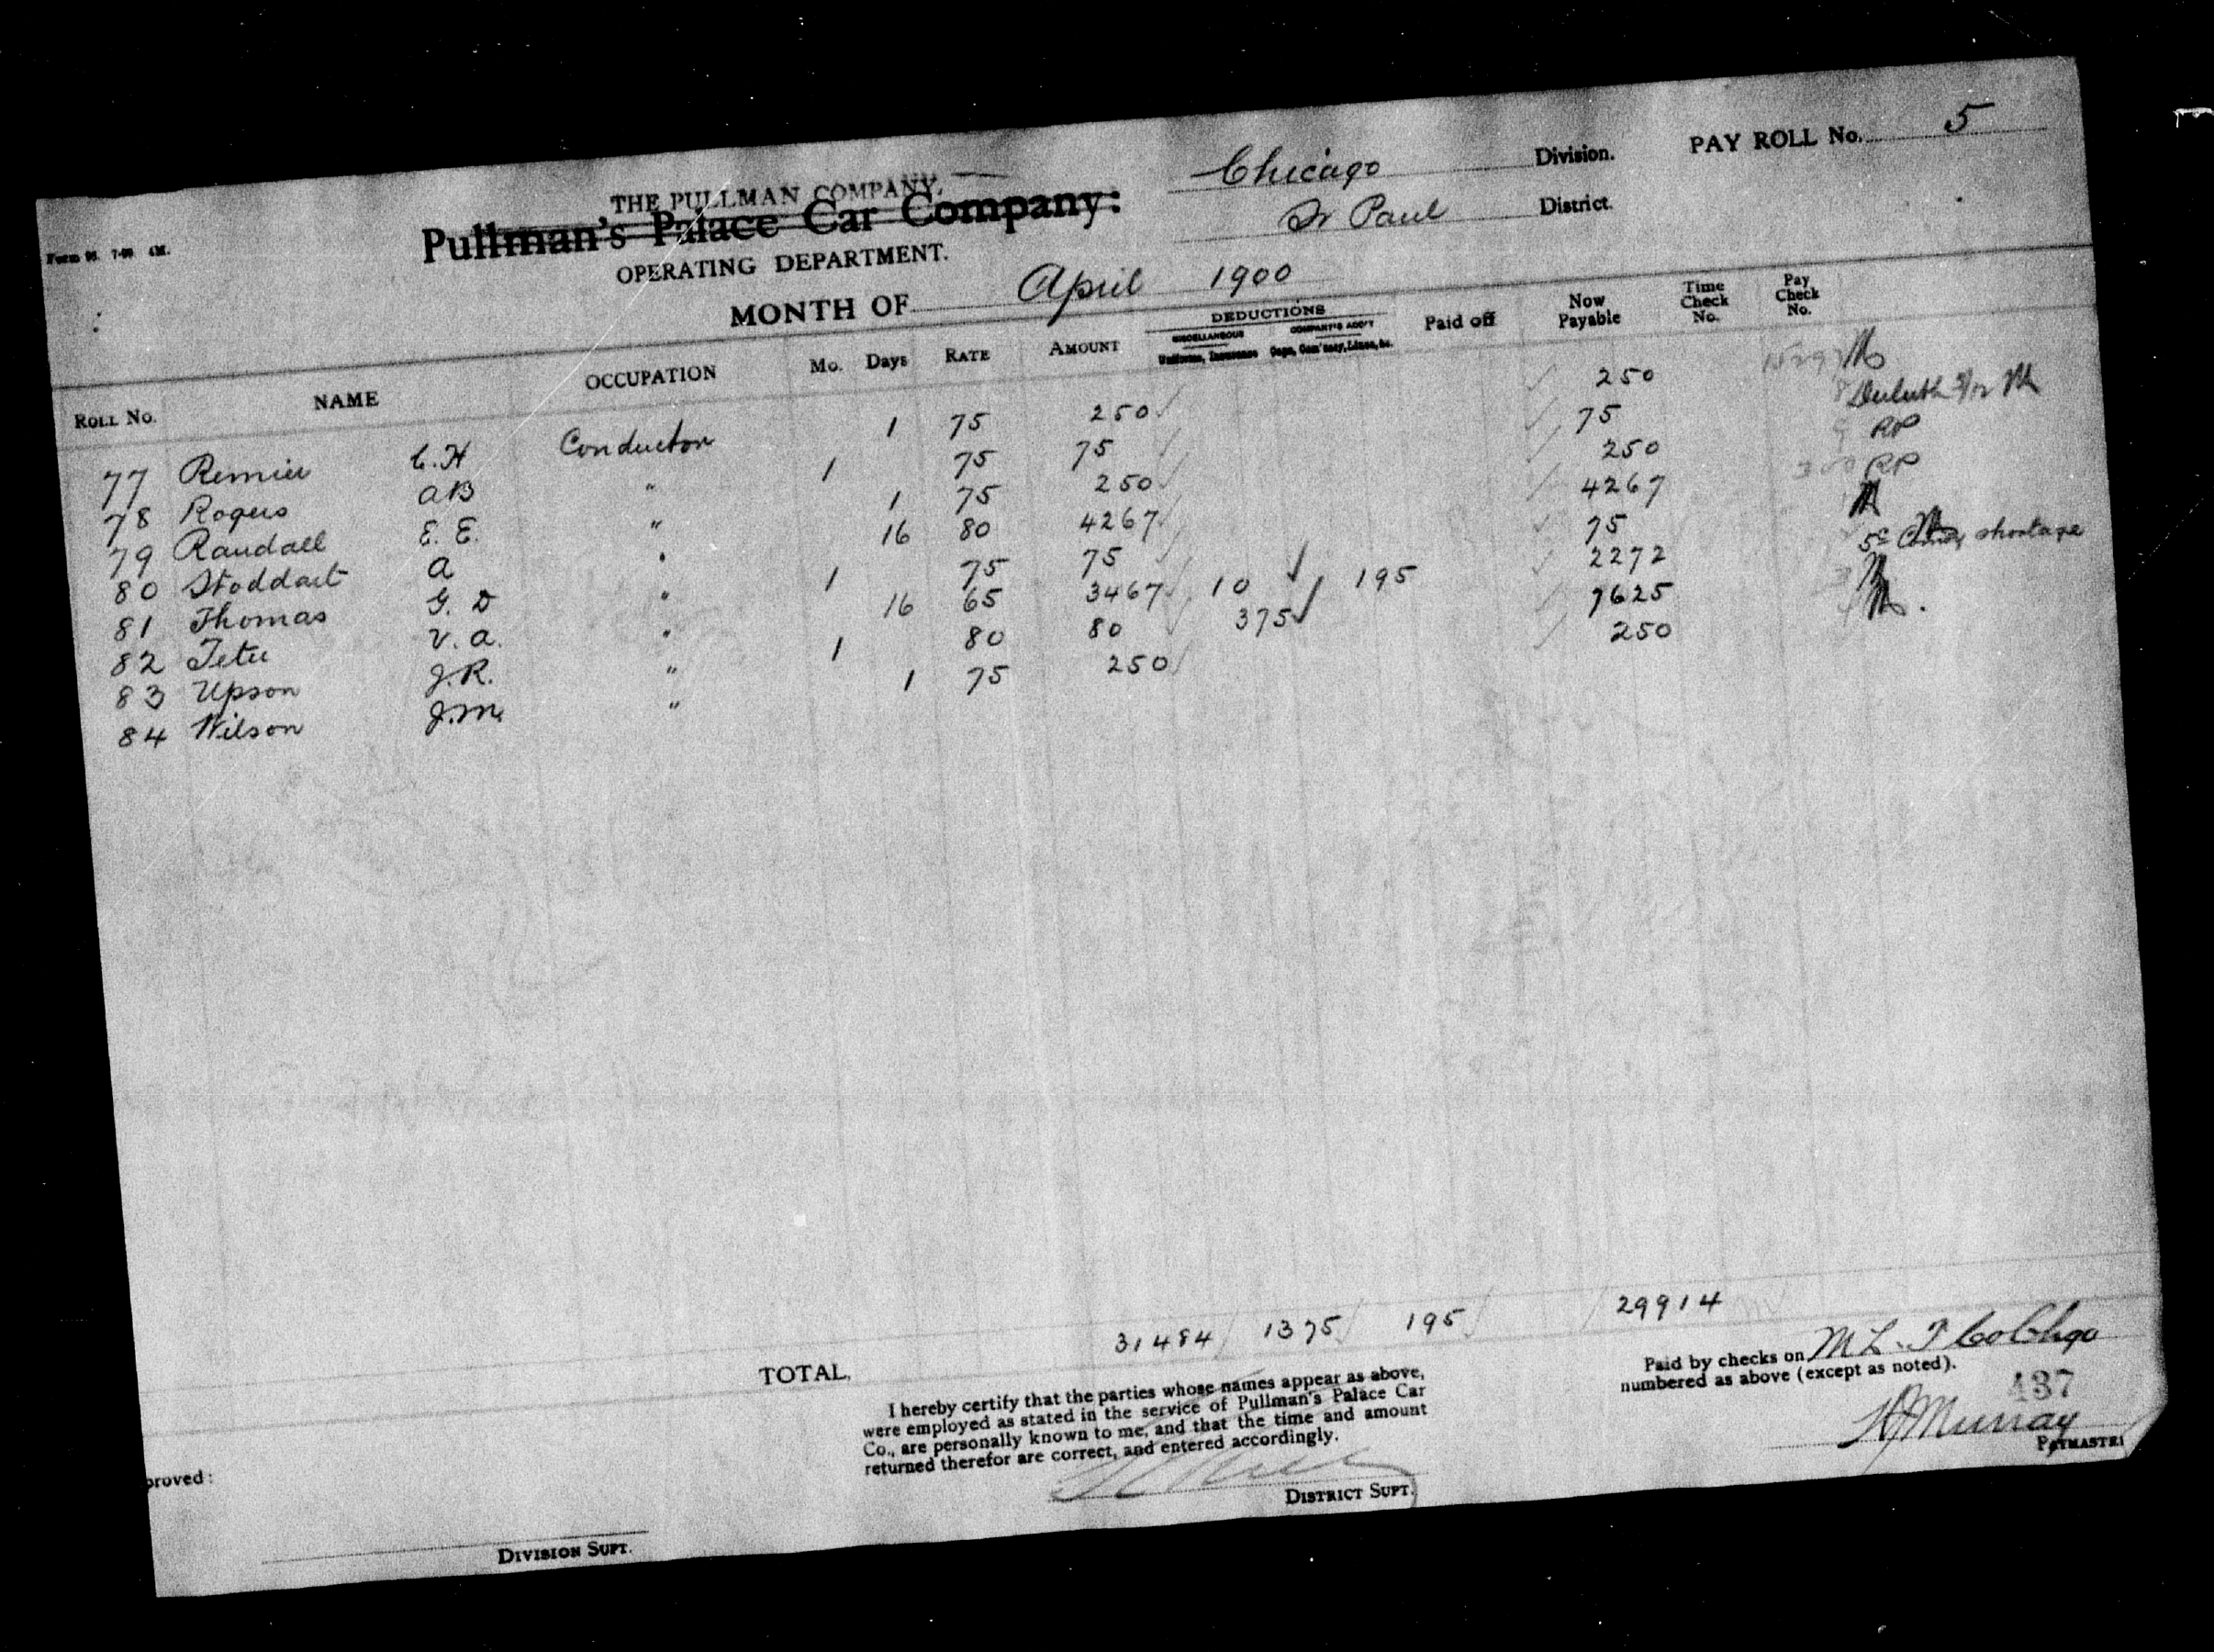 Form 95 7-99 4M.
THE PULLMAN COMPANY,
Pullman's Palace Car Company:
OPERATING DEPARTMENT.
MONTH OF April 1900
Chicago Division.
St Paul District.
PAY ROLL No. 5
ROLL No. NAME OCCUPATION Mo. Days RATE AMOUNT DEDUCTIONS MISCELLANEOUS Uniforms, Insurance COMPANY'S ACC'T Caps, Com'sary, Linen, &c. Paid off Now Payable Time Check No. Pay Check No.
77 Remier C. H Conductor 1 75 250 250
78 Rogers A B " 1 75 75 75 Duluth
79 Randall E. E. " 1 75 250 250 RP
80 Stoddart A " 16 80 4267 4267 RP
81 Thomas G. D " 1 75 75 75
82 Tetu V. A. " 16 65 3467 10 195 2272 5c shortage
83 Upson J. R. " 1 80 80 375 7625
84 Wilson J. M. " 1 75 250 250
TOTAL, 31484 1375 195 29914
I hereby certify that the parties whose names appear as above,
were employed as stated in the service of Pullman's Palace Car
Co., are personally known to me, and that the time and amount
returned therefor are correct, and entered accordingly.
DISTRICT SUPT.
Paid by checks on M L & T Co Chgo
numbered as above (except as noted).
437
Murray
PAYMASTER
proved:
DIVISION SUPT.